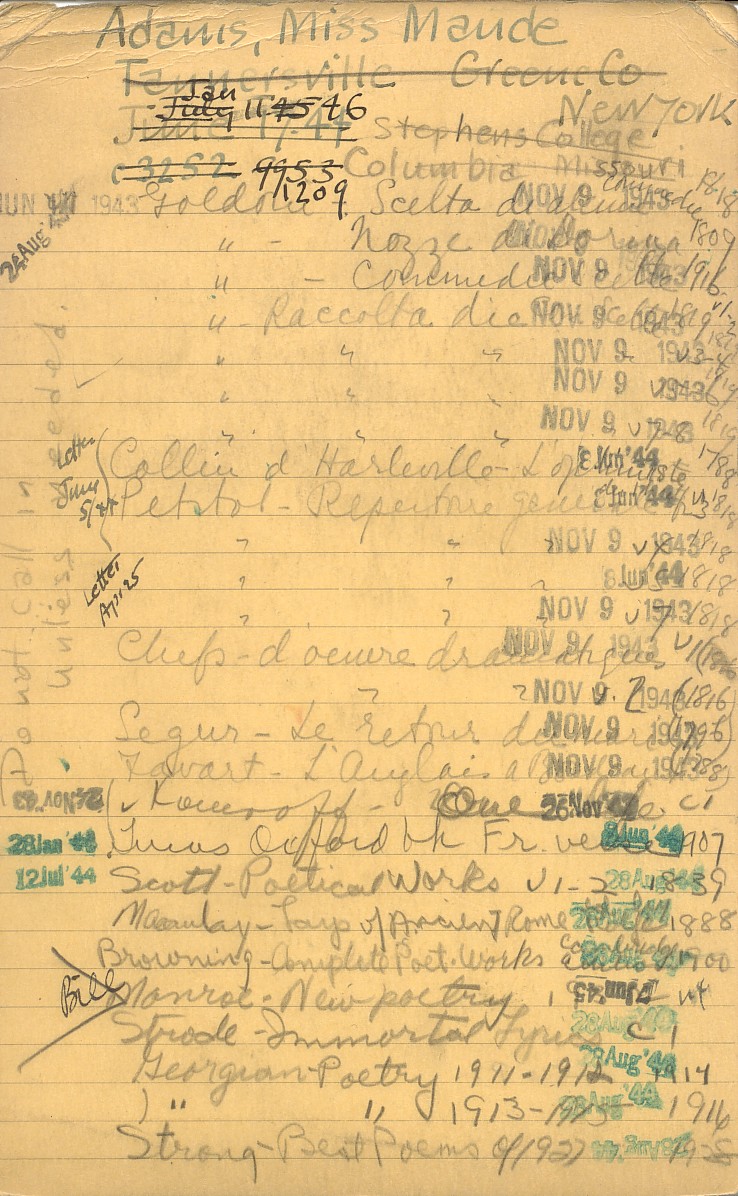 Adams, Miss Maude
Tannersville Greene Co
New York
Jan
July 11 45 46
June 17 44 Stephens College
3252 9953 Columbia Missouri
1209
JUN 1943 Goldoni Scelta di NOV 9 1943 1818
24 Aug '44
" - Nozze di Dorina 1809
" - Commedie scelte NOV 9 1943 1816
" - Raccolta di NOV 9 1943 v1-2
" " " NOV 9 1943 v3-4
" " NOV 9 1943 v5-6 1819
" " " NOV 9 1943 v7-8 1819
Letter June 5/44
Collin d'Harleville - L'optimiste 8 Jun '44 1788
Petitot - Repertoire general 8 Jun '44 v3 1818
" " " NOV 9 1943 v4 1818
" " " 8 Jun '44 v5 1818
Letter Apr 25
" " " NOV 9 1943 v7 1818
Do not call in unless needed.
Chefs-d'oeuvre dramatiques NOV 9 1943 v1
" " NOV 9 1943 v.2 (1816)
Segur - Le retour du mari NOV 9 1943
Favart - L'Anglais a Bordeaux NOV 9 1943
24 Nov '43 Komroff - 26 Nov c1
28 Jan '44 Lucas Oxford bk Fr. verse 8 Jun '44 1907
12 Jul '44 Scott - Poetical Works v1-2 28 Aug '44 1839
Macaulay - Lays of Ancient Rome 1888
Browning - Complete Poet. Works 28 Aug '44 1900
Bill
Monroe - New poetry
Strode - Immortal Lyrics 28 Aug '44 c1
Georgian Poetry 1911-1912 28 Aug '44 1914
" " 1913-1915 28 Aug '44 1916
Strong - Best Poems of 1927 28 Aug '44 1928